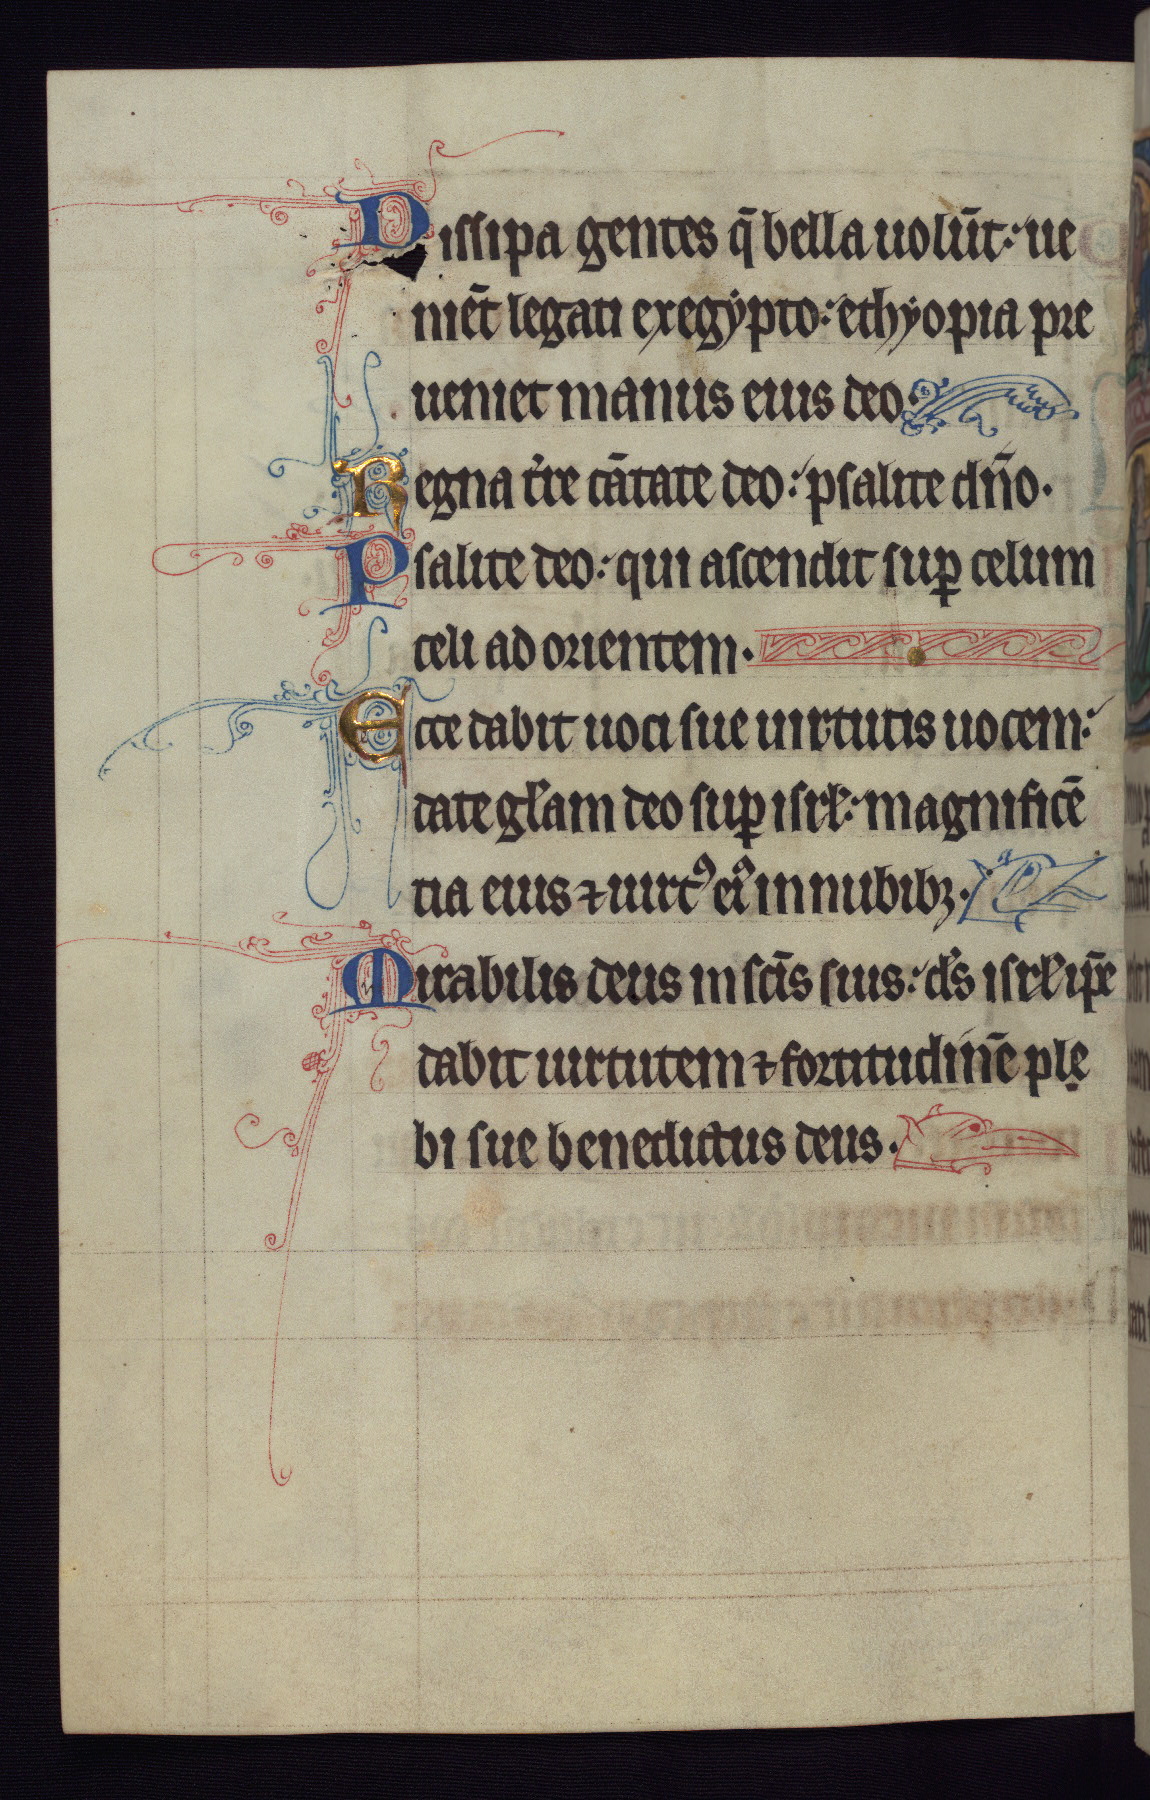 Dissipa gentes q̄ bella uolūt: ue
niēt legati exegẏpto: ethẏopia pre
ueniet manus eius deo:
Regna t̉re cātate deo: psalite dn̄o.
Psalite deo: qui ascendit suꝑ celum
celi ad orientem.
Ecce dabit uoci sue uirtutis uocem:
date gl̄am deo suꝑ isrł: magnificē
tia eius ⁊ uirtꝰ eiꝰ in nubibꝫ.
Mirabilis deus in scīs suis: ds̄ isrł ip̄e
dabit uirtutem ⁊ fortitudinē ple
bi sue benedictus deus.